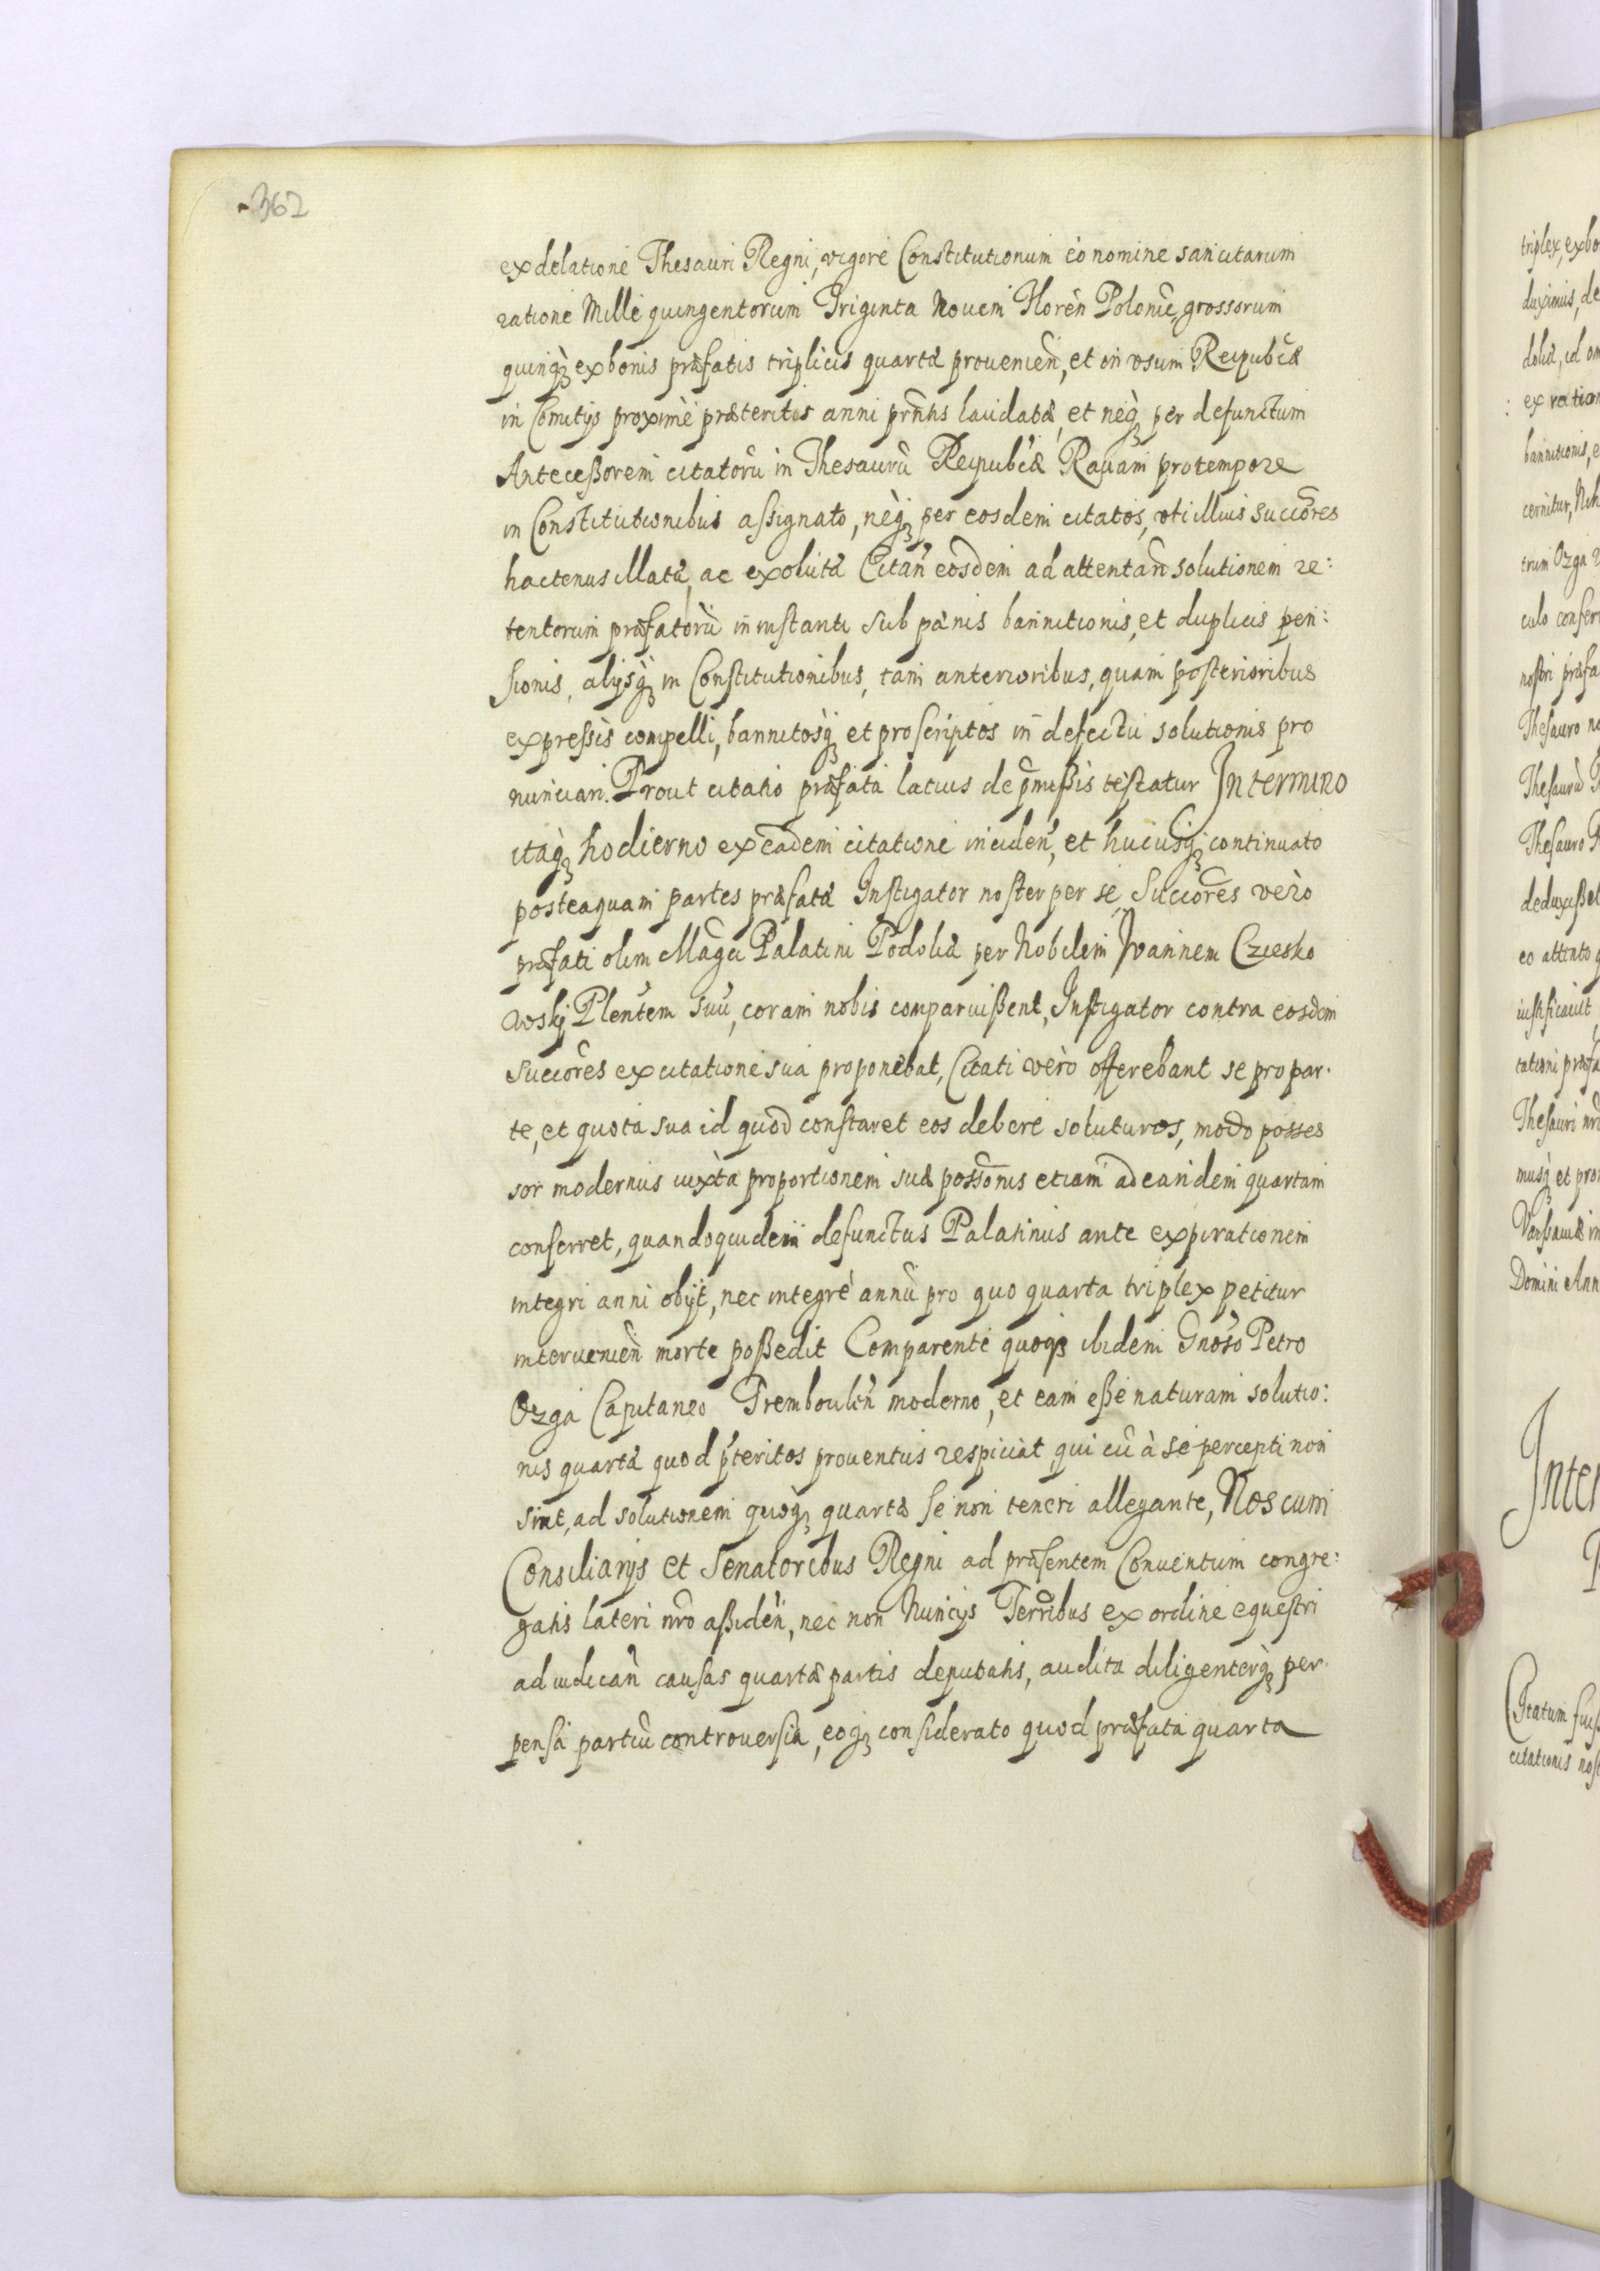 362
ex delatione Thesauri Regni, vigore Constitutionum eo nomine sancitarum
ratione Mille quingentorum Triginta Novem Floren̄ Polonic̄, grossorum
quinq; ex bonis præfatis triplicis quartæ provenien̄, et in usum Reipub̄cæ
in Comitijs proximè præteritis anni prn̄tis laudatæ, et neq; per defunctum
Antecessorem citatorū in Thesaurū Reipub̄cæ Ravam pro tempore
in Constitutionibus assignato, nèq; per eosdem citatos, uti illius Succōres
hactenus illatæ, ac exolutæ Citan̄ eosdem ad attentan̄ solutionem re:
tentorum præfatorū in instanti sub pænis bannitionis, et duplicis pen:
sionis, alijsq; in Constitutionibus, tam anterioribus, quam posterioribus
expressis compelli, bannitosq; et proscriptos in defectu solutionis pro
nunciari. Prout citatio præfata latius de p̄missis testatur In termino
itaq; hodierno ex eadem citatione inciden̄, et hucusq; continuato
posteaquam partes præfatæ Instigator noster per se, Succōres verò
præfati olim Magci Palatini Podoliæ per Nobilem Ioannem Cziesko
wskj Plen̄tem suū, coram nobis comparuissent, Instigator contra eosdem
Succōres ex citatione sua proponebat, Citati verò offerebant se pro par:
te, et quota sua id quod constaret eos debere soluturos, modo posses
sor modernus iuxta proportionem suæ possōnis etiam ad eandem quartam
conferret, quandoquidem defunctus Palatinus ante expirationem
integri anni obijt, nec integrè annū pro quo quarta triplex petitur
intervenien̄ morte possedit Comparente quoq; ibidem Gnōso Petro
Ozga Capitaneo Tremboulen̄ moderno, et eam esse naturam solutio:
nis quartæ quod p̄teritos proventus respiciat, qui cū à se percepti non
sint, ad solutionem quoq; quartæ se non teneri allegante, Nos cum
Consiliarijs et Senatoribus Regni ad præsentem Conventum congre:
gatis lateri nr̄o assiden̄, nec non Nuncijs Terr̄ibus ex ordine equestri
ad iudican̄ causas quartæ partis deputatis, audita diligenterq; per
pensa partiū controversia, eoq; considerato quod præfata quarta
triplex, ex bo
duximus, de
doliæ, id om
ex ration
bannitionis, e
cernitur, Nih
trum Ozga
culo confer
nostri præfa
Thesauro no
Thesaurū
Thesauro R
deduxisset
eo attento q
iustificavit
tationi præfa
Thesauri nr̄i
musq; et pro
Varsaviæ in
Domini Ann
Inter
Citatum fuis
citationis nos